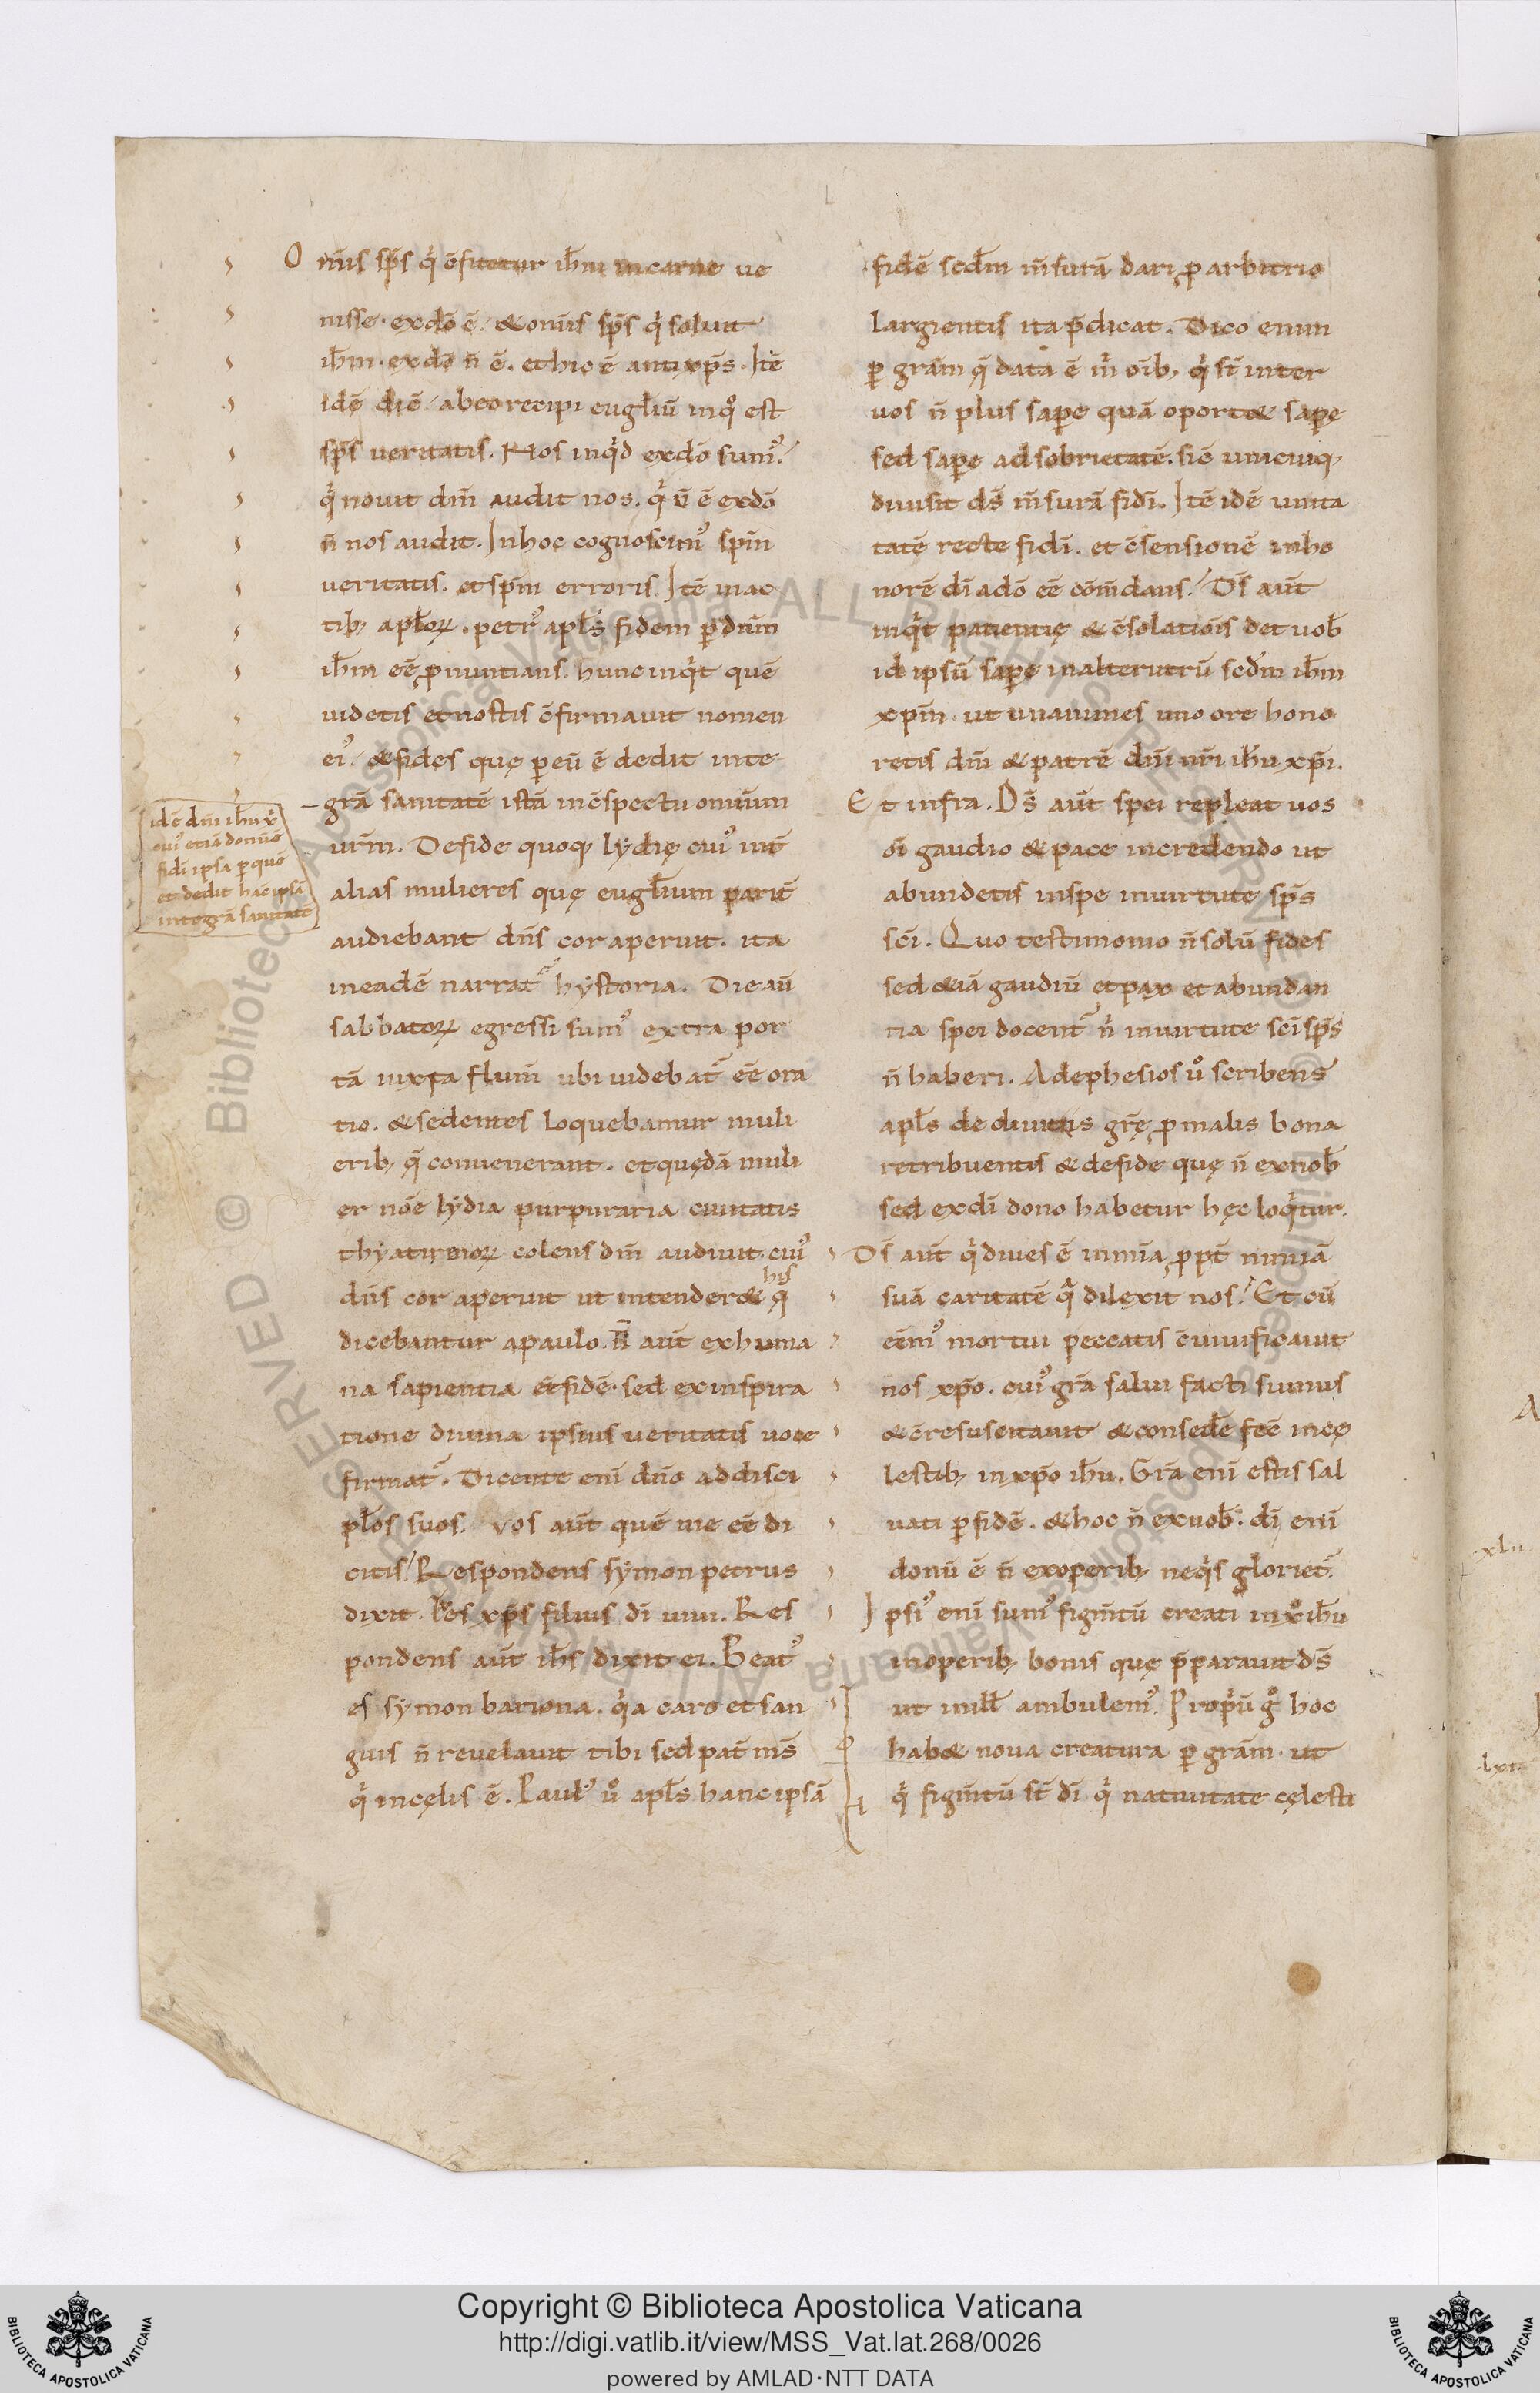 Om̅is sp̅s q̍ ɔ̅fitetur ih̅m incarne ue
nisse. exdō ē. & om̅is sp̅s q̍ soluit
ih̅m. exdō n̄ ē. et hic ē antixp̅s. Itē
idē diē abeo recipi eugl̅iū inq̊ est
sp̅s ueritatis. Nos inq̍d exdō sumꝰ.
q̍ nouit dm̄ audit nos. q̍ n̄ ē exdō
n̄ nos audit. Inhoc cognoscimꝰ sp̅m
ueritatis. et sp̅m erroris. Itē inac
tib; apl̅oꝝ. petrꝰ apl̅s fidem ꝑ dn̅m
ih̅m eē ꝓnuntians. hunc inq̍t quē
uidetis et nostis ɔ̅firmauit nomen
eiꝰ. & fides quę ꝑ eū ē dedit inte
grā sanitatē istā inɔ̅spectu omnium
ur̅m. Defide quoq; lydię cuiꝰ int̄
alias mulieres quę eugl̅ium parit̄
audiebant dn̅s cor aperuit. ita
ineadē narrat᷑ hystoria. Die aū
sabbatoꝝ egressi sumꝰ extra por
tā iuxta flum̄ ubi uidebat᷑ eē ora
tio. & sedentes loquebamur muli
erib; q̄ conuenerant. et quędā muli
er nōe lydia purpuraria ciuitatis
thyatirenoꝝ colens dm̄ audiuit. cuiꝰ
dn̅s cor aperuit ut intender& his q̄
dicebantur apaulo. N̄ aūt exhuma
na sapientia eē fidē. sed exinspira
tione diuina ipsius ueritatis uoce
firmat᷑. Dicente enī dn̅o addisci
pl̅os suos. Vos aūt quē me eē di
citis. Respondens symon petrus
dixit. Tu es xp̅s filius dī uiui. Res
pondens aūt ih̅s dixit ei. Beatꝰ
es symon bariona. q̍a caro et san
guis n̄ reuelauit tibi sed pat̄ ms̄
q̍ incęlis ē. Paulꝰ ů apl̅s hanc ipsā
idē dn̅i ih̅u x̅i
cuiꝰ etiā donūē
fidī ipsa ꝑ quē
et dedit hāc ipsā
integrā sanitatē
fidē scd̅m m̄surā dari ꝓ arbitrio
largientis ita p̄dicat. Dico enim
ꝑ gr̅am q̄ data ē m̍ om̅ib; q̍ st̄ inter
uos n̄ plus saꝑe quā oport& saꝑe
sed saꝑe adsobrietatē. sic̄ unicuiq;
diuisit ds̄ m̄surā fidī. Itē idē unita
tatē recte fidī. et ɔ̅sensionē inho
norē dī adō eē cōm̄dans. Ds̄ aūt
inq̍t patientię & ɔ̅solatiōis det uob̄
id ipsū saꝑe inalterutrū scd̅m ih̅m
xpm̄. ut unanimes uno ore hono
retis dm̄ & patrē dn̅i nr̅i ih̅u xp̅i.
Et infra. Ds̄ aūt spei repleat uos
oī gaudio & pace incredendo ut
abundetis inspe inuirtute sp̅s
sc̅i. Quo testimonio n̄ solū fides
sed &iā gaudiū et pax et abundan
tia spei docent᷑ n̍ inuirtute sc̅i sp̅s
n̄ haberi. Adephesios ů scribens
apl̅s de diuitiis gr̅ę ꝓ malis bona
retribuentis & defide quę n̄ exnob̄
sed exdī dono habetur hęc loq̍tur.
Ds̄ aūt q̍ diues ē inmīa ꝓpt̄ nimiā
suā caritatē qͣ dilexit nos. Et cū
eēmꝰ mortui peccatis ɔ̅uiuificauit
nos xp̅o. cuiꝰ gr̅a salui facti sumus
& ɔ̅resuscitauit & consed̄e fec̄ incę
lestib; inxp̅o ih̅u. Gr̅a enī estis sal
uati ꝑ fidē. & hoc n̄ exuob̄. dī enī
donū ē n̄ exoperib; neq̍s gloriet᷑.
Ipsiꝰ enī sumꝰ figm̄tū creati inx̊ ih̅u
inoperib; bonis quę p̄parauit ds̄
ut inill̅ ambulemꝰ. Propriū g̊ hoc
hab& noua creatura ꝑ gr̅am. ut
q̍ figm̄tū st̄ dī q̍ natiuitate cęlesti
Copyright © Biblioteca Apostolica Vaticana
http://digi.vatlib.it/view/MSS_Vat.lat.268/0026
powered by AMLAD·NTT DATA
BIBLIOTECA APOSTOLICA VATICANA
BIBLIOTECA APOSTOLICA VATICANA